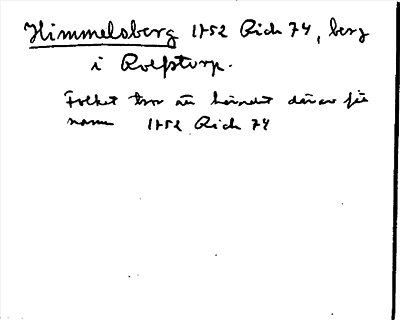 Himmelsberg 1752 Rich 74, berg
i Rolfstorp.
Folket tror än häradet därav fått
namn 1752 Rich 74